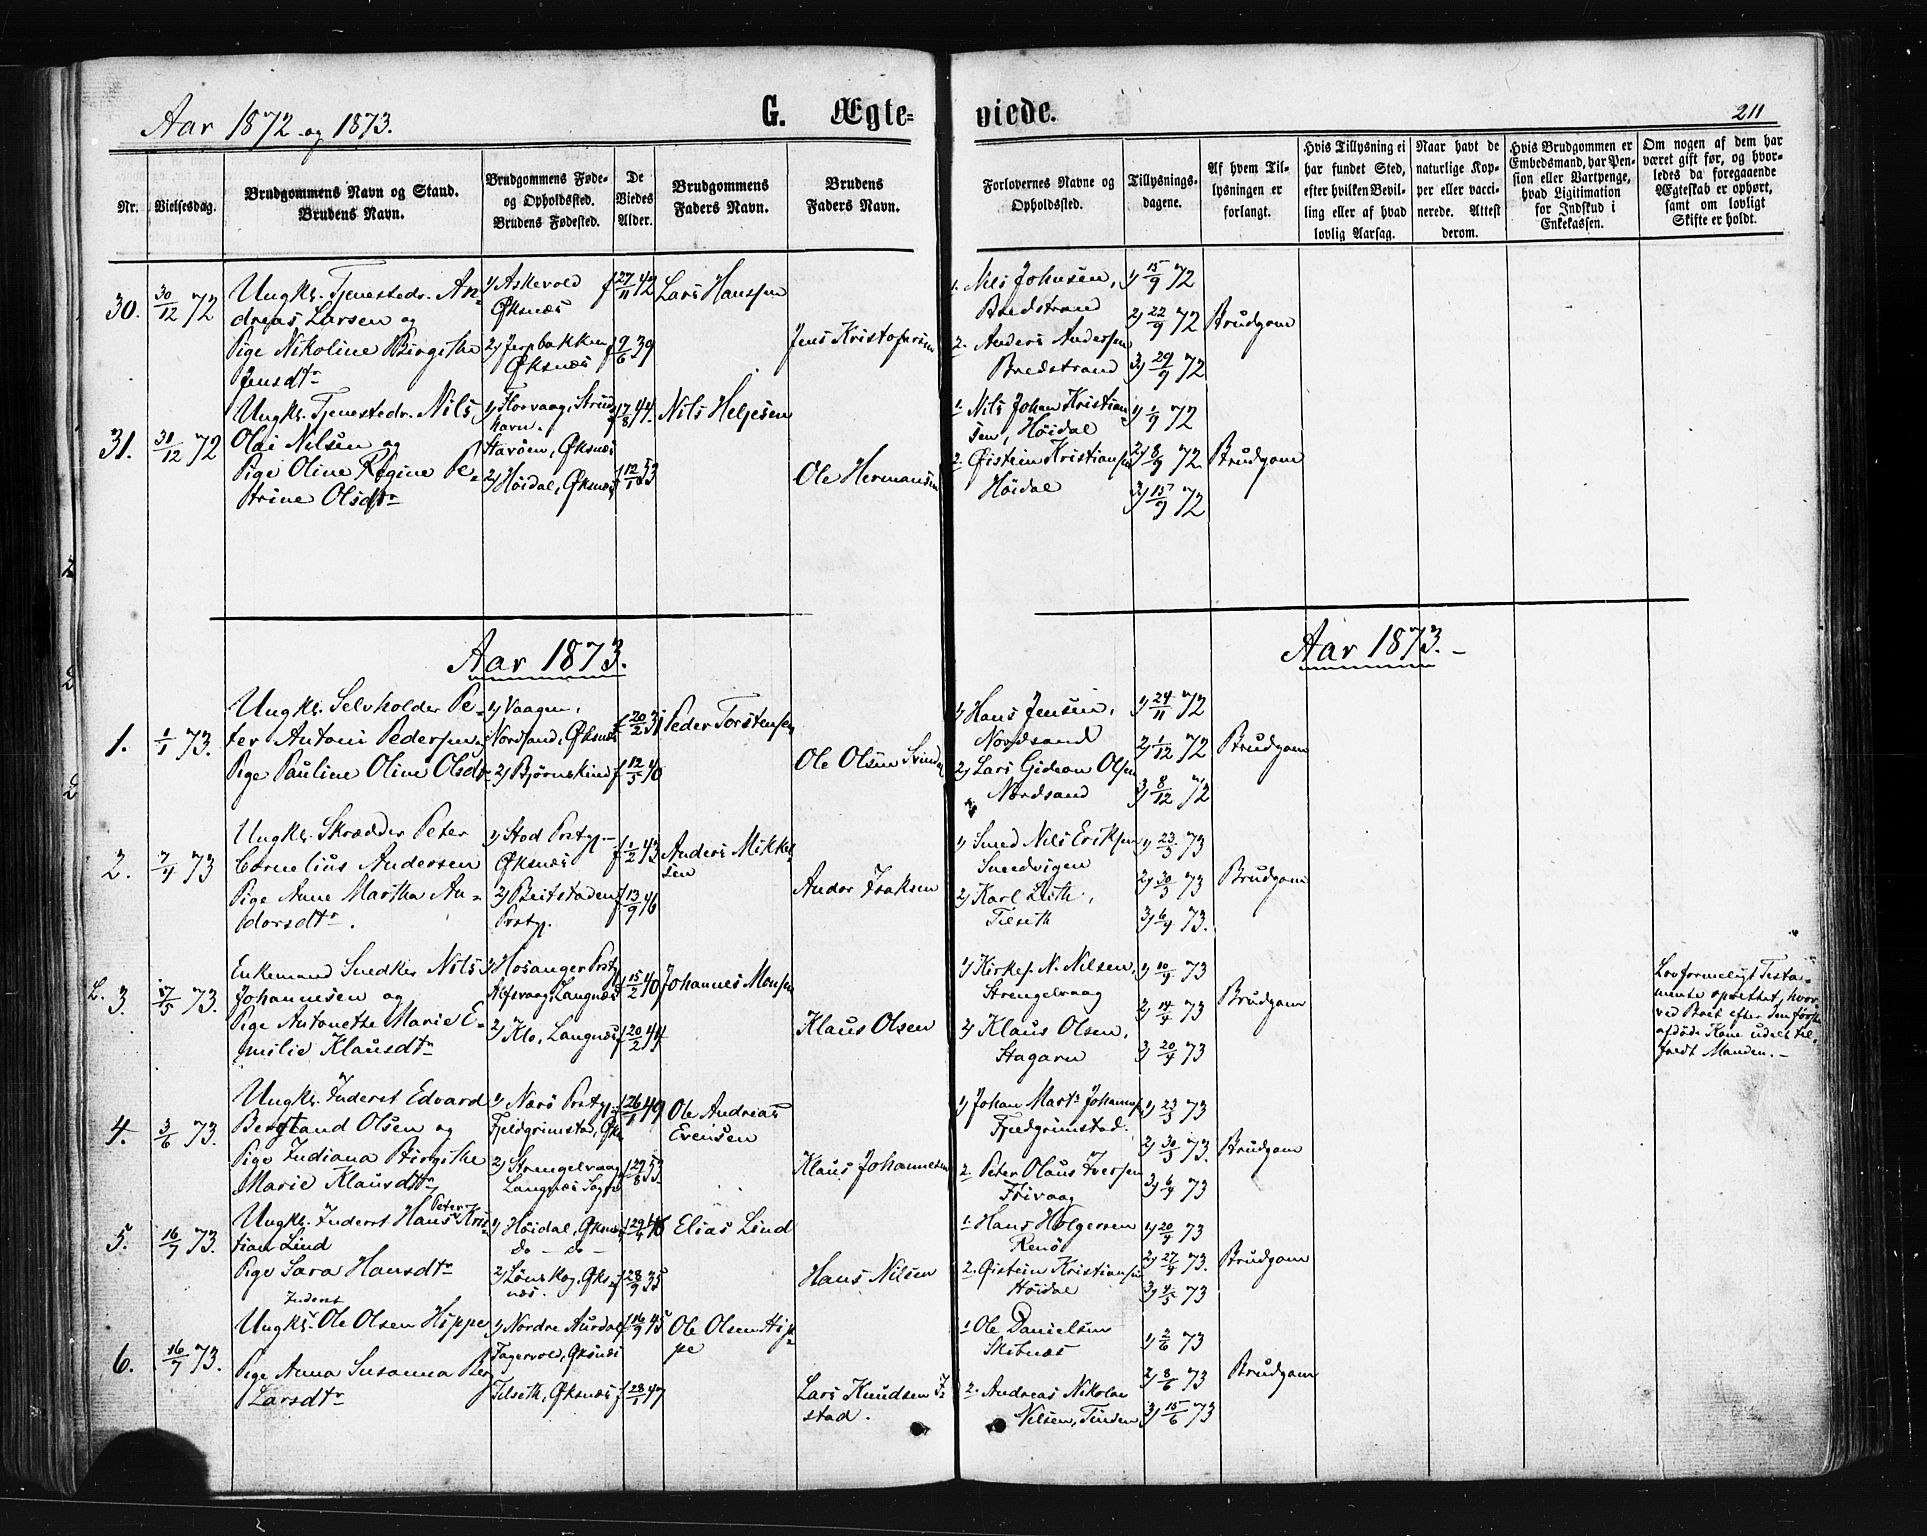 Aar 1872 og 1873.
G. Ægte-
viede.
211
Nr.
Vielsesdag.
Brudgommens Navn og Stand.
Brudens Navn.
Brudgommens Føde-
og Opholdsted.
Brudens Fødested.
De
Viedes
Alder.
Brudgommens
Faders Navn.
Brudens
Faders Navn.
Forlovernes Navne og
Opholdsted.
Tillysnings-
dagene.
Af hvem Til-
lysningen er
forlangt.
Hvis Tillysning ei
har fundet Sted,
efter hvilken Bevil-
ling eller af hvad
lovlig Aarsag.
Naar havt de
naturlige Kop-
per eller vacci-
nerede. Attest
derom.
Hvis Brudgommen er
Embedsmand, har Pen-
sion eller Vartpenge,
hvad Ligitimation
for Indskud i
Enkekassen.
Om nogen af dem har
været gift før, og hvor-
ledes da foregaaende
Ægteskab er ophørt,
samt om lovligt
Skifte er holdt.
30.
30/12 72
Ungk. Tjenestedr. An-
dreas Larsen og
Pige Nikoline Birgithe
Jensdtr
1) Askevold
Øksnæs
2) Jerpbakken
Øksnæs
f 27/11 42
f 9/6 39
Lars Hanssen
Jens Kristofersen
1. Nils Johnsen,
Bredstrand
2. Anders Andersen
Bredstrand
1) 15/9 72
2) 22/9 72
3) 29/9 72
Brudgom
31.
31/12 72
Ungk. Tjenestedr. Nils
Olai Nilsen og
Pige Oline Regine Pe-
trine Olsdtr
1) Florvaag, Strus-
havn.
Starøen, Øksnæs
2) Høidal, Øksnæs
f 7/8 44.
f 12/1 53
Nils Heljesen
Ole Hermansen
1. Nils Johan Kristian-
sen, Høidal
2. Øistein Kristiansen
Høidal
1) 1/9 72
2) 8/9 72
3) 15/9 72
Brudgom
Aar 1873.
Aar 1873.
1.
1/1 73.
Ungk. Selvholder Pe-
ter Antoni Pedersen
Pige Pauline Oline Olsdtr
1) Vaagen,
Nordsand, Øksnæs
2) Bjørnskind
f 20/2 31
f 12/5 40
Peder Torstensen
Ole Olsen
1) Hans Jensen,
Nordsand
2) Lars Gideon Olsen
Nordsand
1) 24/11 72
2) 1/12 72
3) 8/12 72
Brudgom
2.
7/4 73
Ungk. Skrædder Peter
Cornelius Andersen
Pige Anne Martha An-
dorsdtr.
1) Stod Prstgj.
Øksnæs
2) Beitstaden
Prstgj.
f 1/2 43
f 13/9 46
Anders Mikkel-
sen
Andor Isaksen
1) Smed Nils Eriksen
Smedvigen
2) Karl Lith,
Tilseth
1) 23/3 73
2) 30/3 73
3) 6/4 73.
Brudgom
L. 3.
17/5 73.
Enkemand Snedker Nils
Johannesen og
Pige Antonette Marie E-
milie Klausdtr
1) Hosanger Prstgj
Alfsvaag, Langnæs
2) Klo, Langnæs
f 15/2 40
f 20/2 44
Johannes Monsen
Klaus Olsen
1) Kirkes. N. Nilsen,
Strengelvaag
2) Klaus Olsen,
Stagarn
1) 10/4 73
2) 14/4 73
3) 20/4 73
Brudgom
Lovformeligt Testa-
mente oprettet, hvor-
ved Boet efter den første
afdøde Kone udelt til-
faldt Manden.
4.
3/6 73.
Ungk. Inderst Edvard
Bergtand Olsen og
Pige Indiana Birgithe
Marie Klausdtr
1) Nærø Prstgj.
Fjeldgrimstad, Øks
2) Strengelvaag
Langnæs Sogn
f 26/1 49
f 29/8 53
Ole Andreas
Evensen
Klaus Johannesen
1) Johan Mart. Johannes
Fjeldgrimstad.
2. Peter Olaus Iversen
Frivaag
1) 23/3 73
2) 30/3 73.
3) 6/4 73
Brudgom
5.
16/7 73.
Ungk. Inderst Hans Peter Kris-
tian Lind
Pige Sara Hansdtr
1) Høidal, Øksnæs
do - do -
2) Lønskog, Øks-
næs.
f 29/4 46
f 28/9 35
Elias Lind
Hans Nilsen
1. Hans Holgersen
Renø
2. Øistein Kristiansen
Høidal
1) 20/4 73
2) 27/4 73.
3) 4/5 73
Brudgom
6.
16/7 73.
Inderst
Ungk. Ole Olsen Hippe
Pige Anna Susanna Ber
Larsdtr
1) Nordre Aurdal
Fagervold, Øksnæs
Tilseth, Øksnæs
f 16/9 45
f 28/1 47
Ole Olsen Hip-
pe
Lars Knudsen
stad.
1. Ole Danielsen
Skibnæs
2. Andreas Nikolai
Nilsen, Tinden
1) 2/6 73
2) 8/6 73
3) 15/6 73
Brudgom